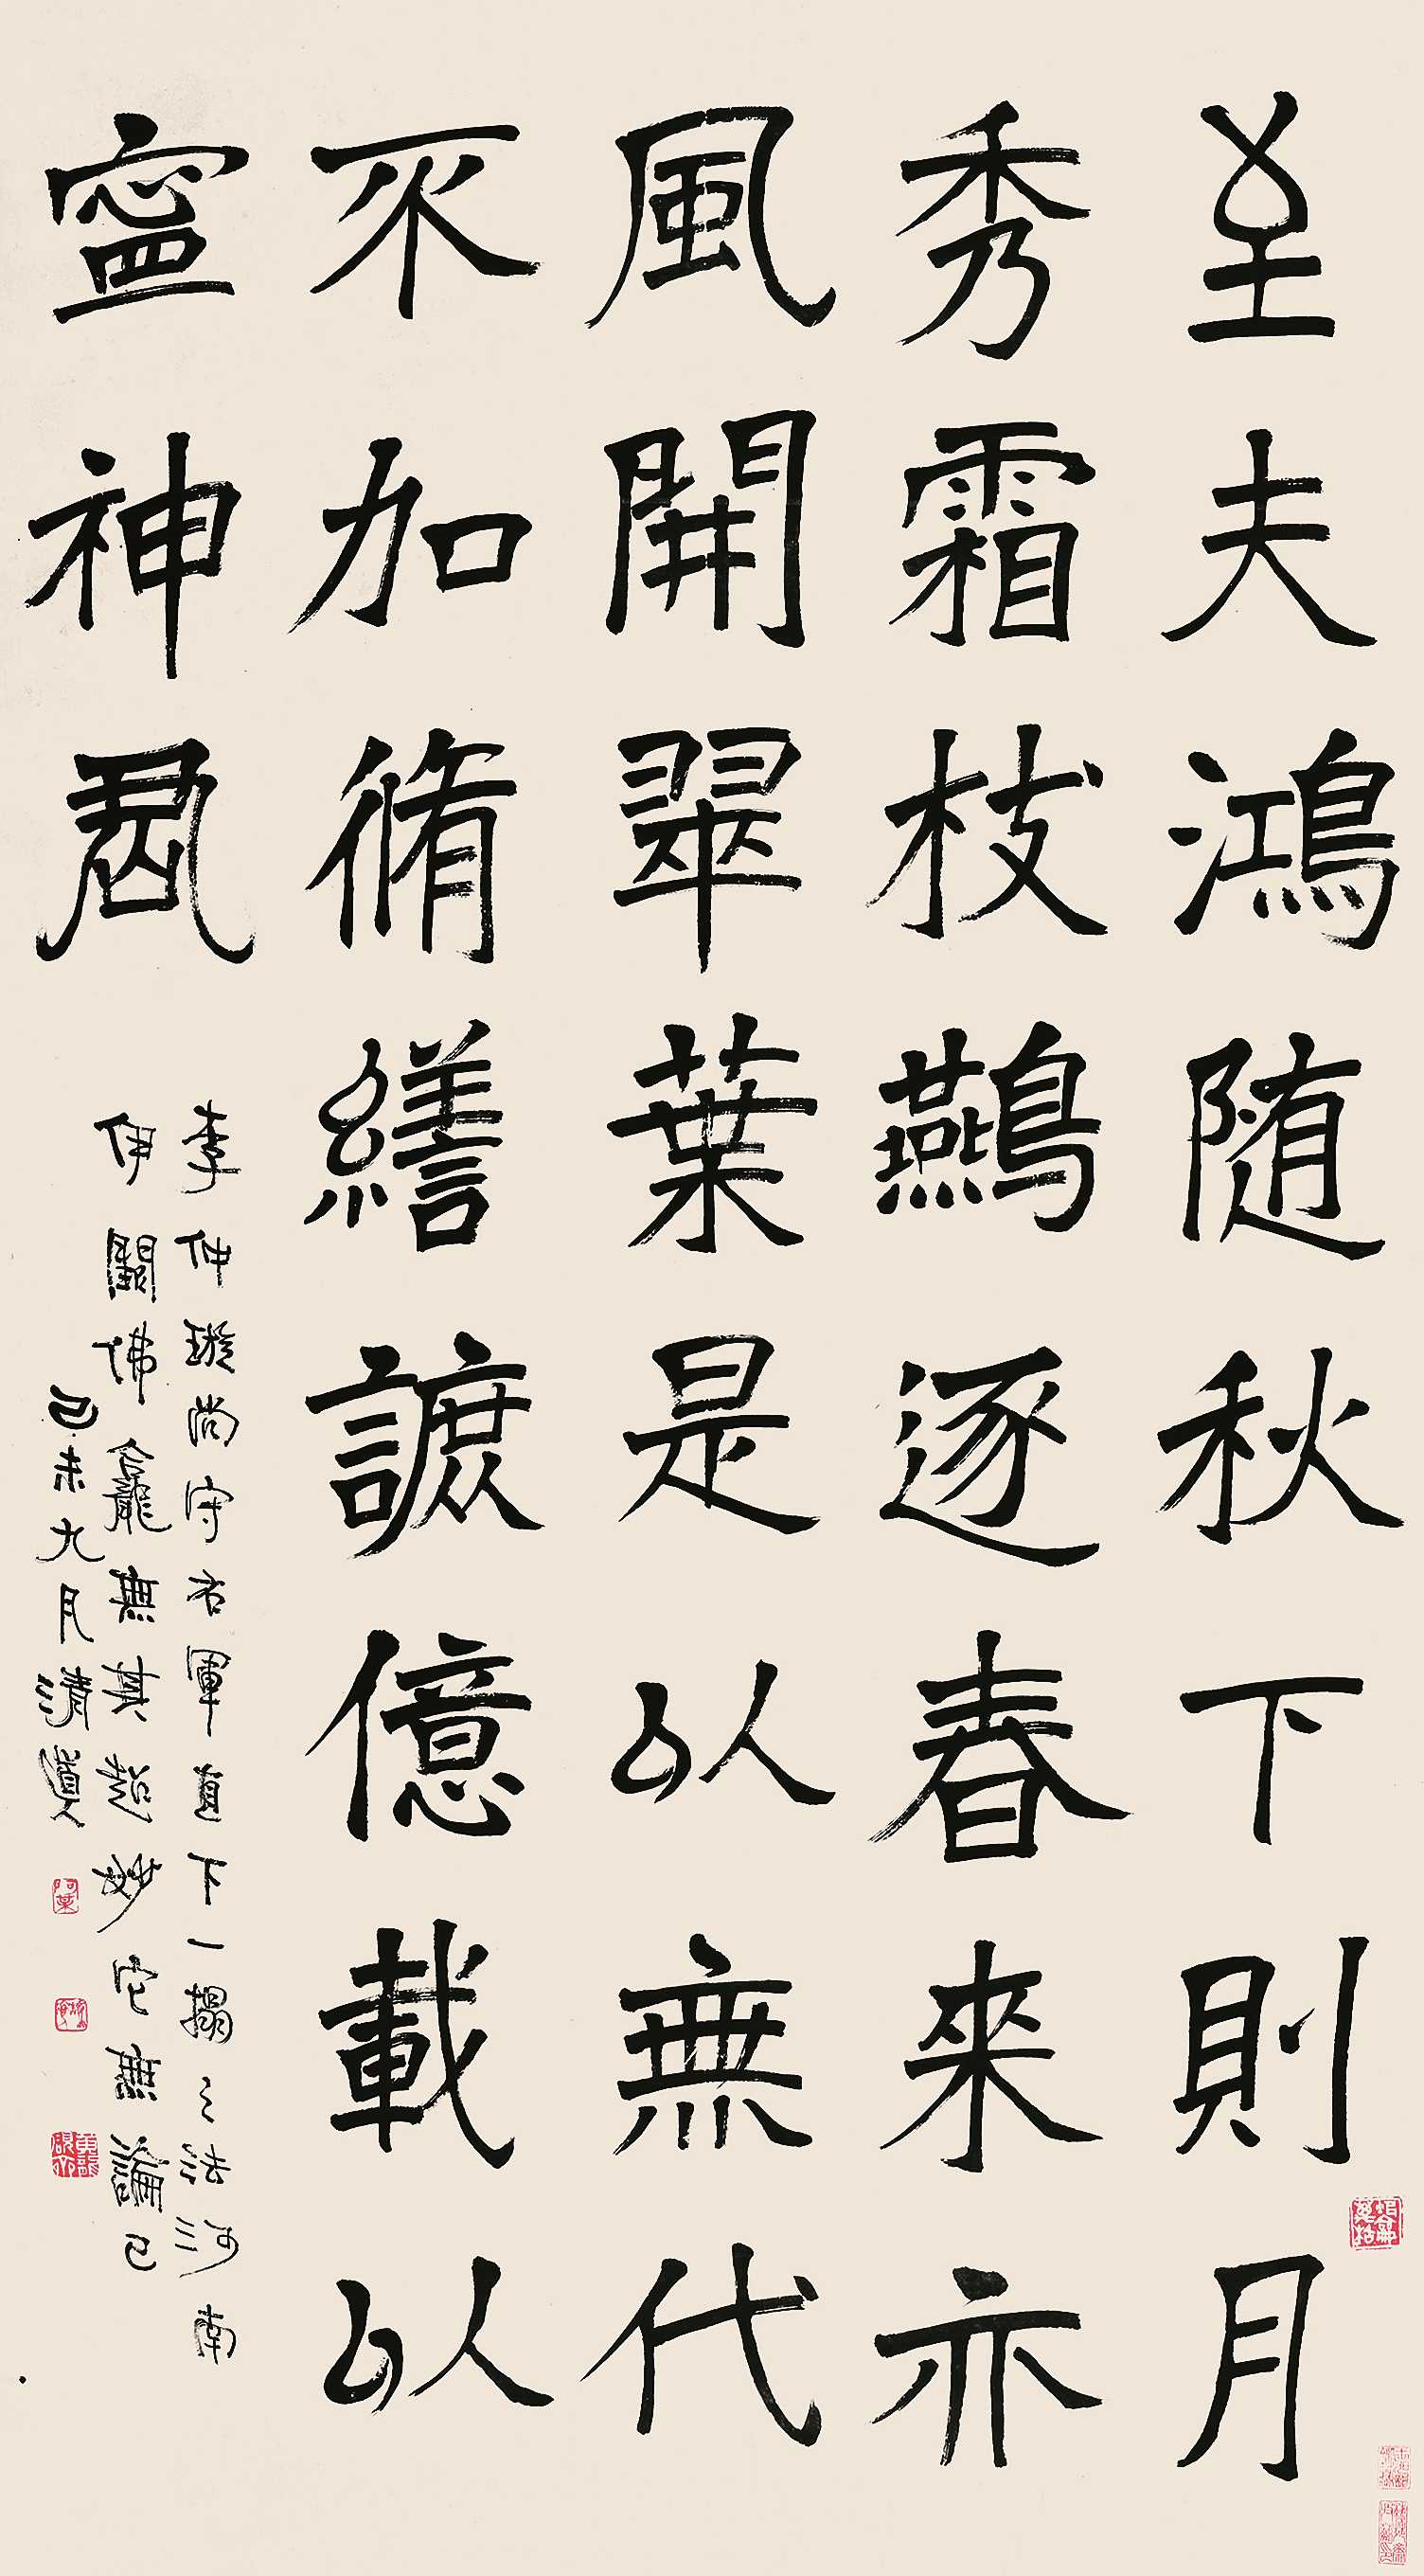 至夫鴻随秋下則月
秀霜枝鷰逐春来亦
風開翠葉是以無代
不加脩繕謶億載以
寧神

李仲璇尚守右軍直下一搨之法河南
伊闕佛龕無其超妙它無論已
己未九月清道人
阿某